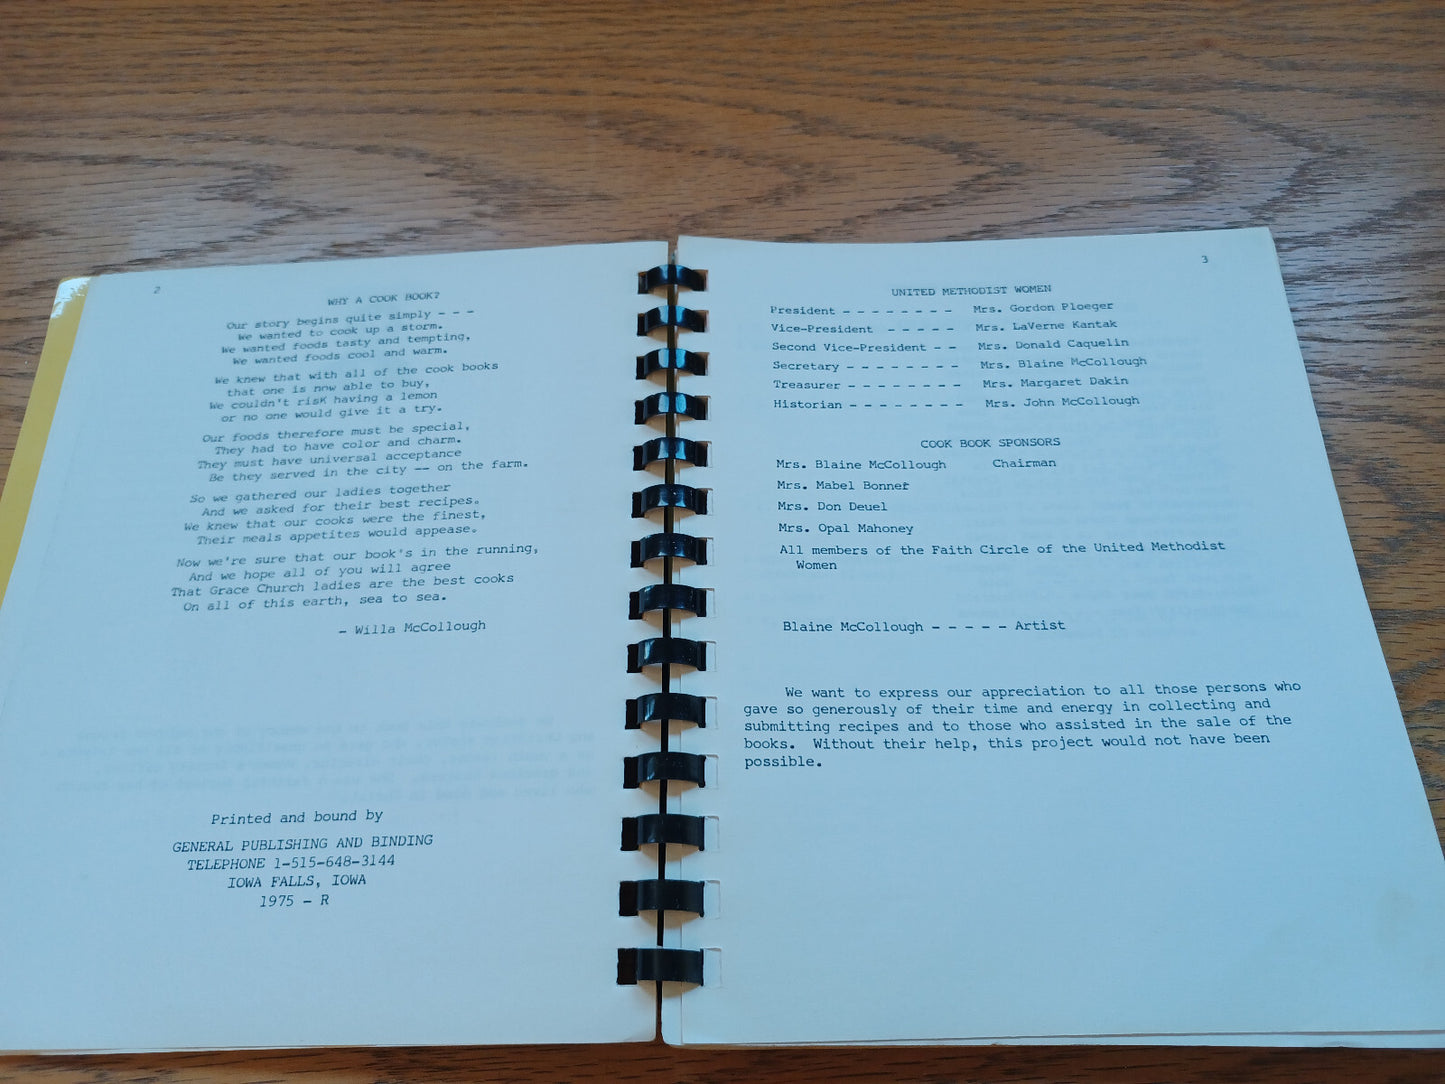 2
WHY A COOK BOOK?
Our story begins quite simply - - -
We wanted to cook up a storm.
We wanted foods tasty and tempting,
We wanted foods cool and warm.
We knew that with all of the cook books
that one is now able to buy,
We couldn't risk having a lemon
or no one would give it a try.
Our foods therefore must be special,
They had to have color and charm.
They must have universal acceptance
Be they served in the city -- on the farm.
So we gathered our ladies together
And we asked for their best recipes.
We knew that our cooks were the finest,
Their meals appetites would appease.
Now we're sure that our book's in the running,
And we hope all of you will agree
That Grace Church ladies are the best cooks
On all of this earth, sea to sea.
- Willa McCollough
Printed and bound by
GENERAL PUBLISHING AND BINDING
TELEPHONE 1-515-648-3144
IOWA FALLS, IOWA
1975 - R
3
UNITED METHODIST WOMEN
President - - - - - - - - Mrs. Gordon Ploeger
Vice-President - - - - - Mrs. LaVerne Kantak
Second Vice-President - - Mrs. Donald Caquelin
Secretary - - - - - - - - Mrs. Blaine McCollough
Treasurer - - - - - - - - Mrs. Margaret Dakin
Historian - - - - - - - - Mrs. John McCollough
COOK BOOK SPONSORS
Mrs. Blaine McCollough Chairman
Mrs. Mabel Bonner
Mrs. Don Deuel
Mrs. Opal Mahoney
All members of the Faith Circle of the United Methodist
Women
Blaine McCollough - - - - - Artist
We want to express our appreciation to all those persons who
gave so generously of their time and energy in collecting and
submitting recipes and to those who assisted in the sale of the
books. Without their help, this project would not have been
possible.